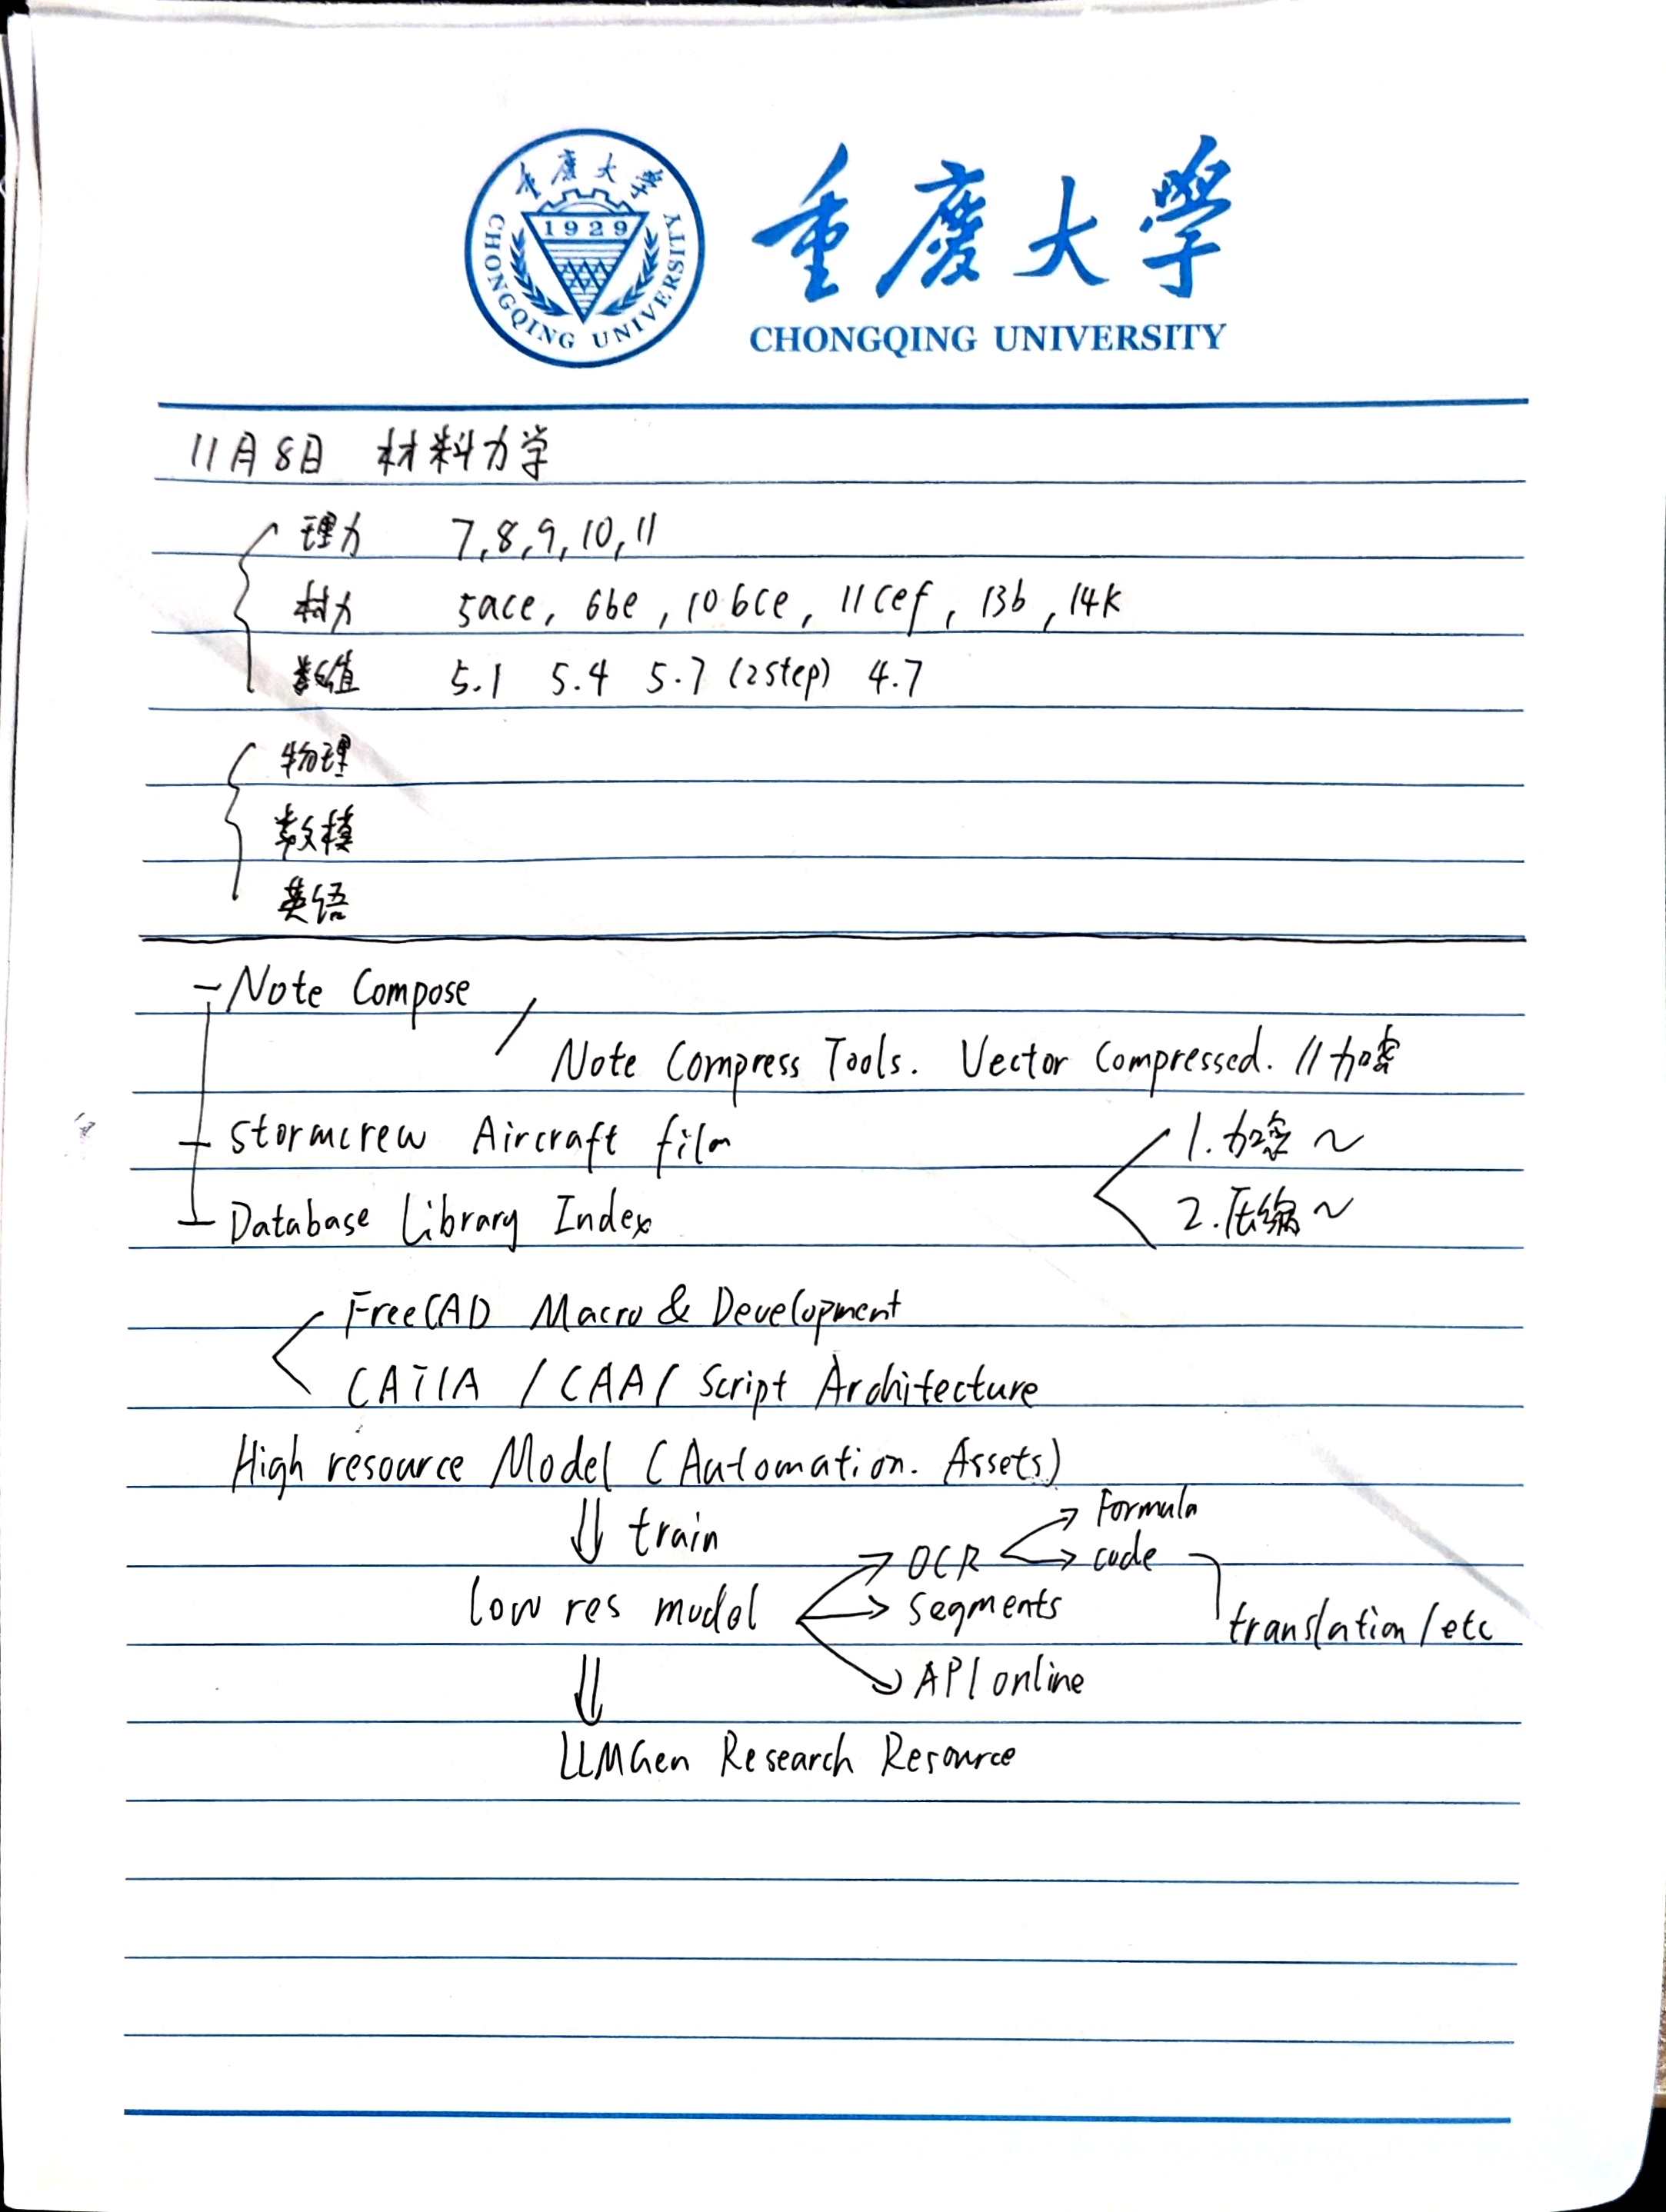 重慶大學
1929
CHONGQING UNIVERSITY
重慶大學
CHONGQING UNIVERSITY
11月8日 材料力学
理力 7,8,9,10,11
材力 5ace, 6be, 10bce, 11cef, 13b, 14k
数值 5.1 5.4 5.7 (2step) 4.7
物理
数模
英语
Note Compose
Note Compress Tools. Vector Compressed. // 加密
Stormcrew Aircraft film
1. 加密 ~
Database Library Index
2. 压缩 ~
FreeCAD Macro & Development
CATIA / CAA / Script Architecture
High resource Model (Automation. Assets)
train
Formula
OCR
code
low res model
segments
translation / etc
API online
LLMGen Research Resource